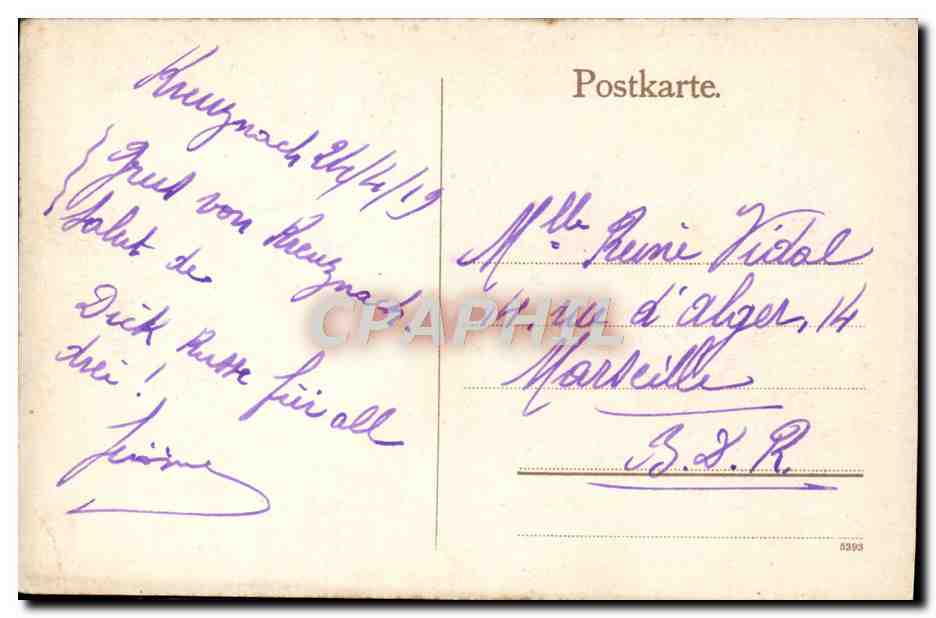 Kreuznach 24/4/19
Grus von Kreuznach.
Salut de
Dick Kusse für all
drei !
Jérôme
Postkarte.
Mlle Reine Vidal
14, rue d'Alger, 14
Marseille
B. D. R.
5393
CPAPHIL